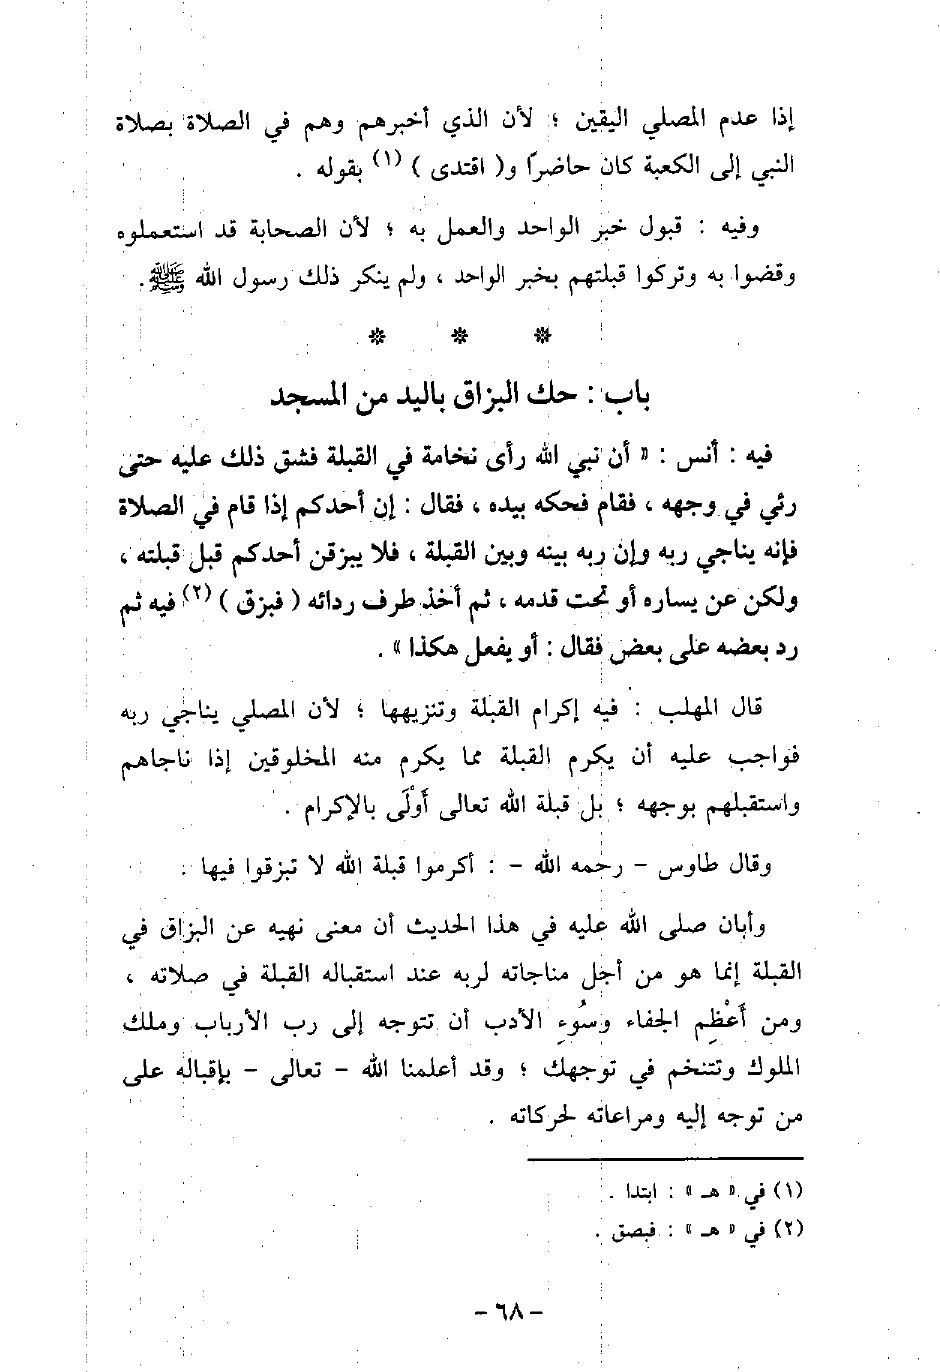 إذا عدم المصلي اليقين ؛ لأن الذي أخبرهم وهم في الصلاة بصلاة
النبي إلى الكعبة كان حاضرًا و( اقتدى ) (١) بقوله .
وفيه : قبول خبر الواحد والعمل به ؛ لأن الصحابة قد استعملوه
وقضوا به وتركوا قبلتهم بخبر الواحد ، ولم ينكر ذلك رسول الله ﷺ .
* * *
باب : حك البزاق باليد من المسجد
فيه : أنس : « أن نبي الله رأى نخامة في القبلة فشق ذلك عليه حتى
رئي في وجهه ، فقام فحكه بيده ، فقال : إن أحدكم إذا قام في الصلاة
فإنه يناجي ربه وإن ربه بينه وبين القبلة ، فلا يبزقن أحدكم قبل قبلته ،
ولكن عن يساره أو تحت قدمه ، ثم أخذ طرف ردائه ( فبزق ) (٢) فيه ثم
رد بعضه على بعض فقال : أو يفعل هكذا » .
قال المهلب : فيه إكرام القبلة وتنزيهها ؛ لأن المصلي يناجي ربه
فواجب عليه أن يكرم القبلة مما يكرم منه المخلوقين إذا ناجاهم
واستقبلهم بوجهه ؛ بل قبلة الله تعالى أَوْلَى بالإكرام .
وقال طاوس – رحمه الله – : أكرموا قبلة الله لا تبزقوا فيها .
وأبان صلى الله عليه في هذا الحديث أن معنى نهيه عن البزاق في
القبلة إنما هو من أجل مناجاته لربه عند استقباله القبلة في صلاته ،
ومن أَعْظِم الجفاء وسُوءِ الأدب أن تتوجه إلى رب الأرباب وملك
الملوك وتتنخم في توجهك ؛ وقد أعلمنا الله – تعالى – بإقباله على
من توجه إليه ومراعاته لحركاته .
(١) في « هـ » : ابتدا .
(٢) في « هـ » : فبصق .
– ٦٨ –